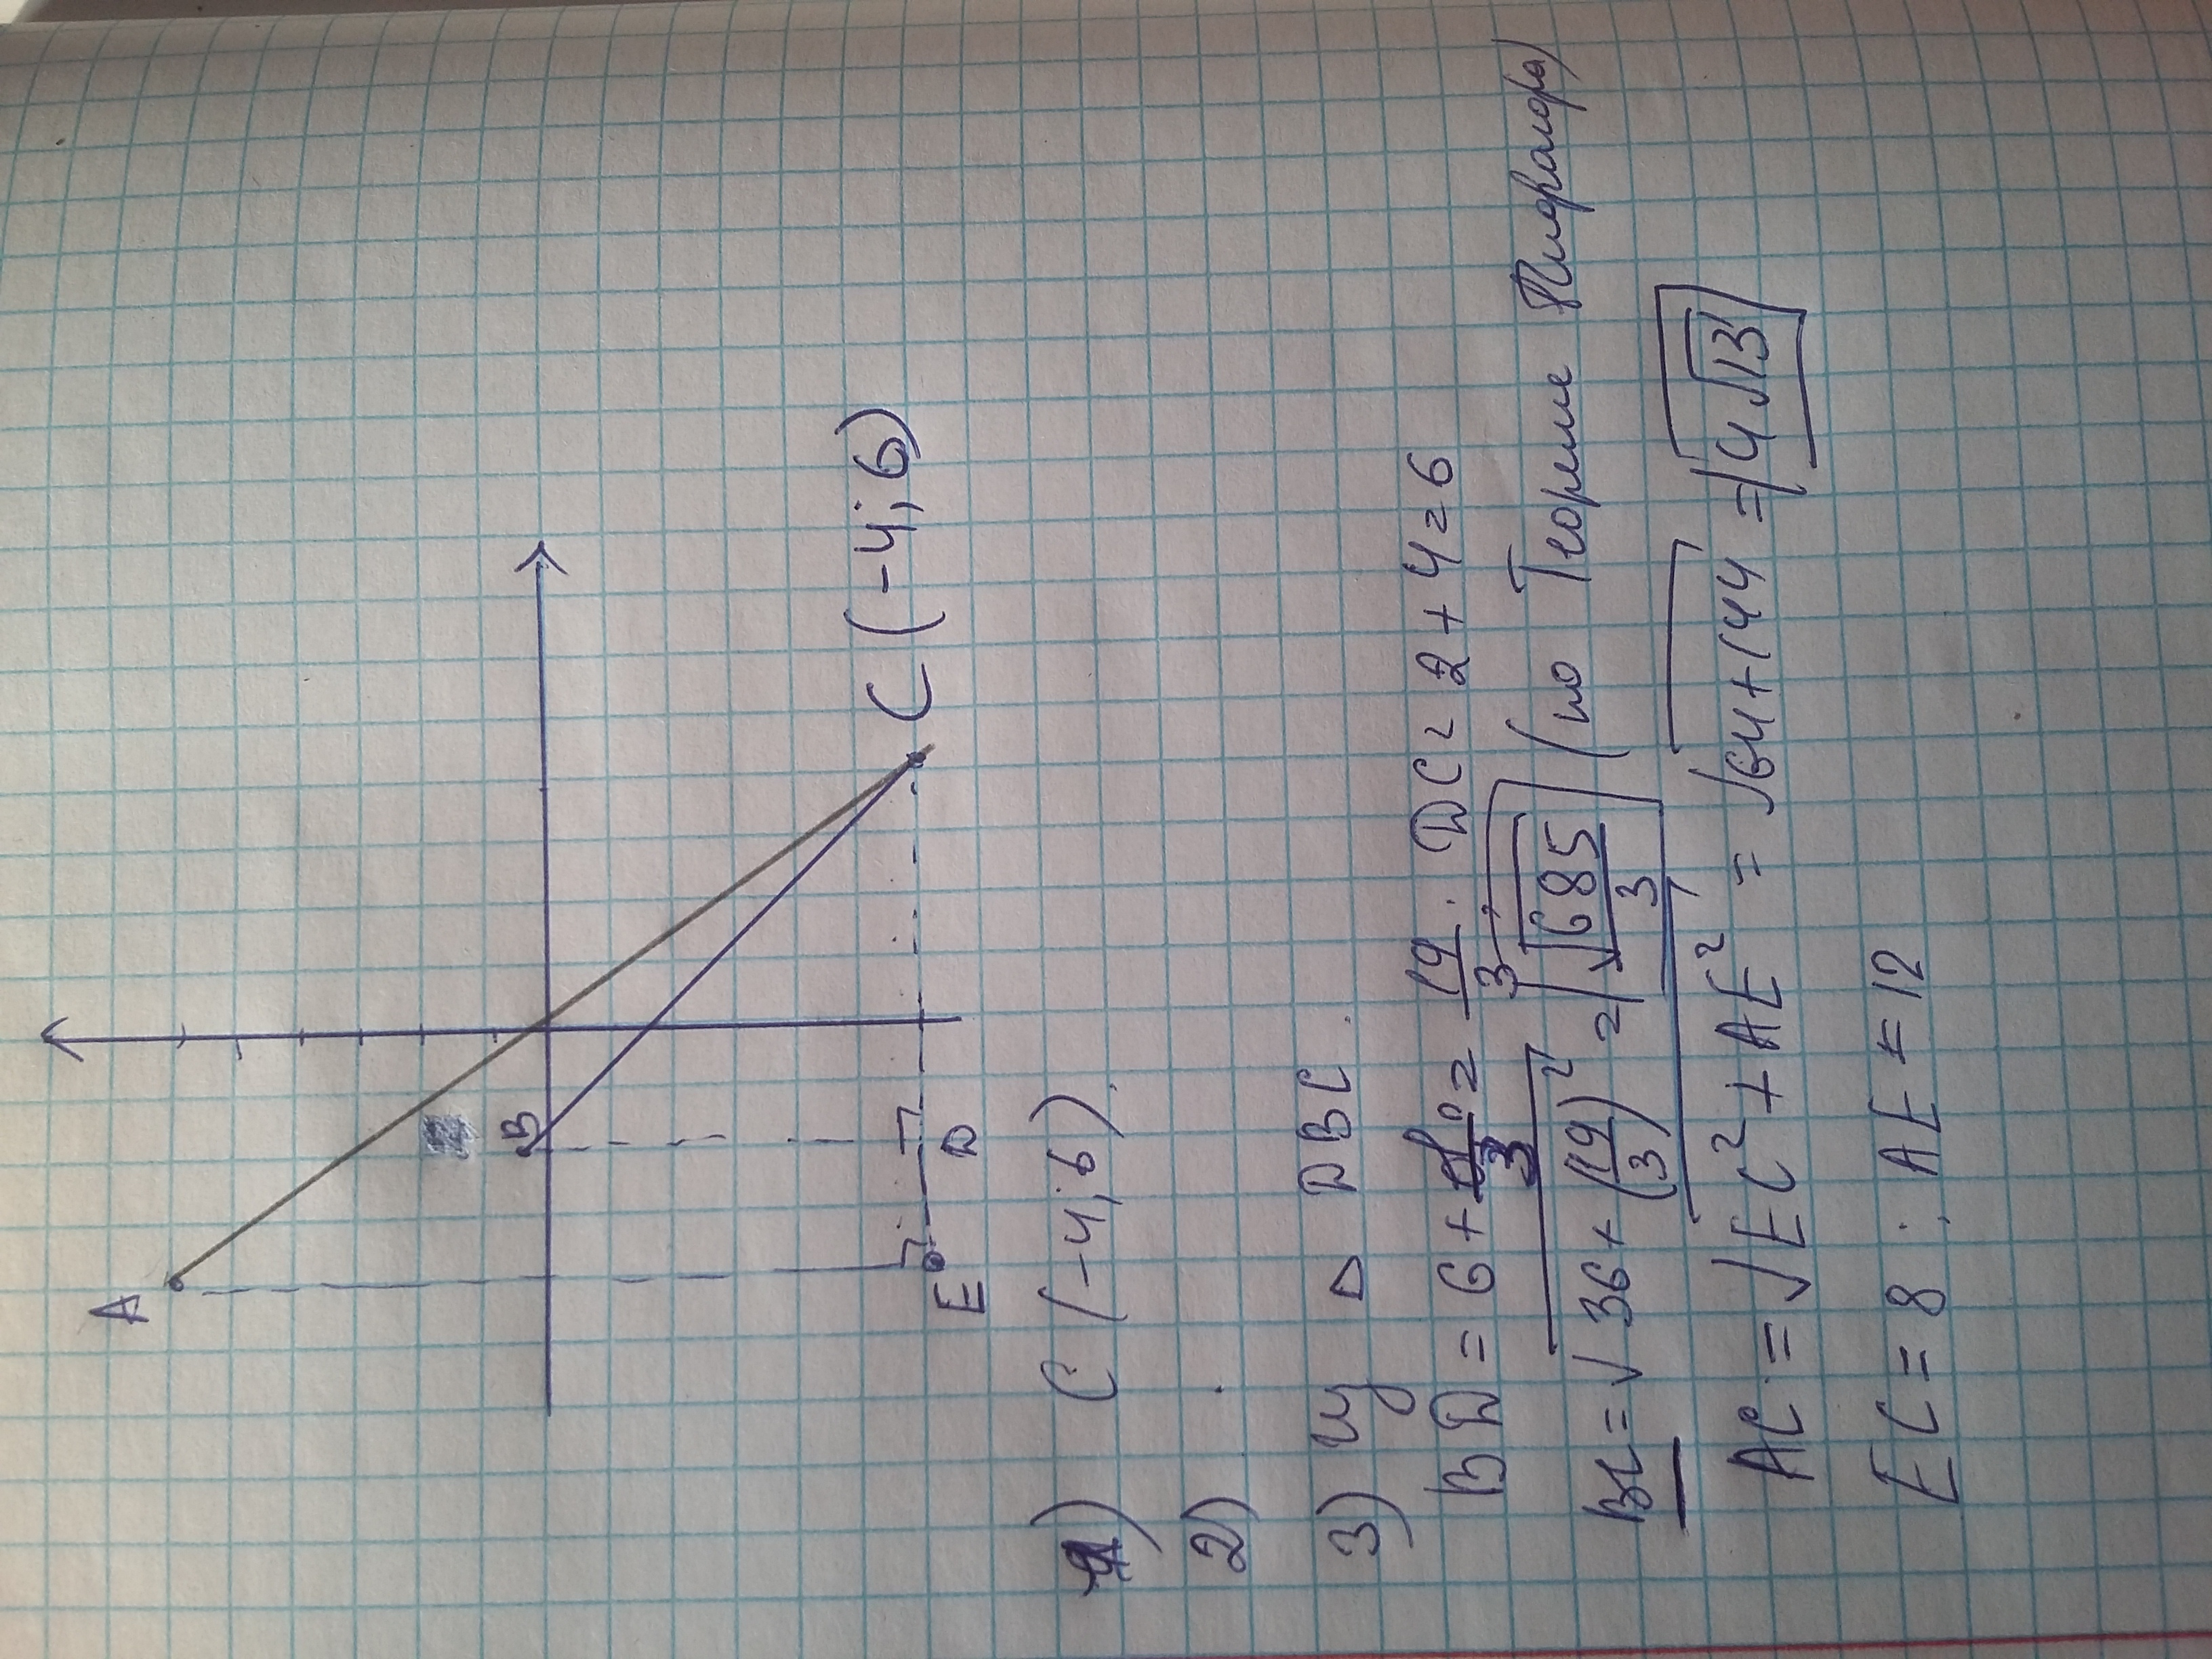 A
B
C (-4; 6)
E
D
1) C (-4; 6).
2)
3) Из Δ DBC.
BD = 6 + 1/3 = 19/3. DC = 2 + 4 = 6
BC = √36 + (19/3)² = √685/3 (по Теореме Пифагора)
AC = √EC² + AE² = √64 + 144 = 4√13
EC = 8; AE = 12